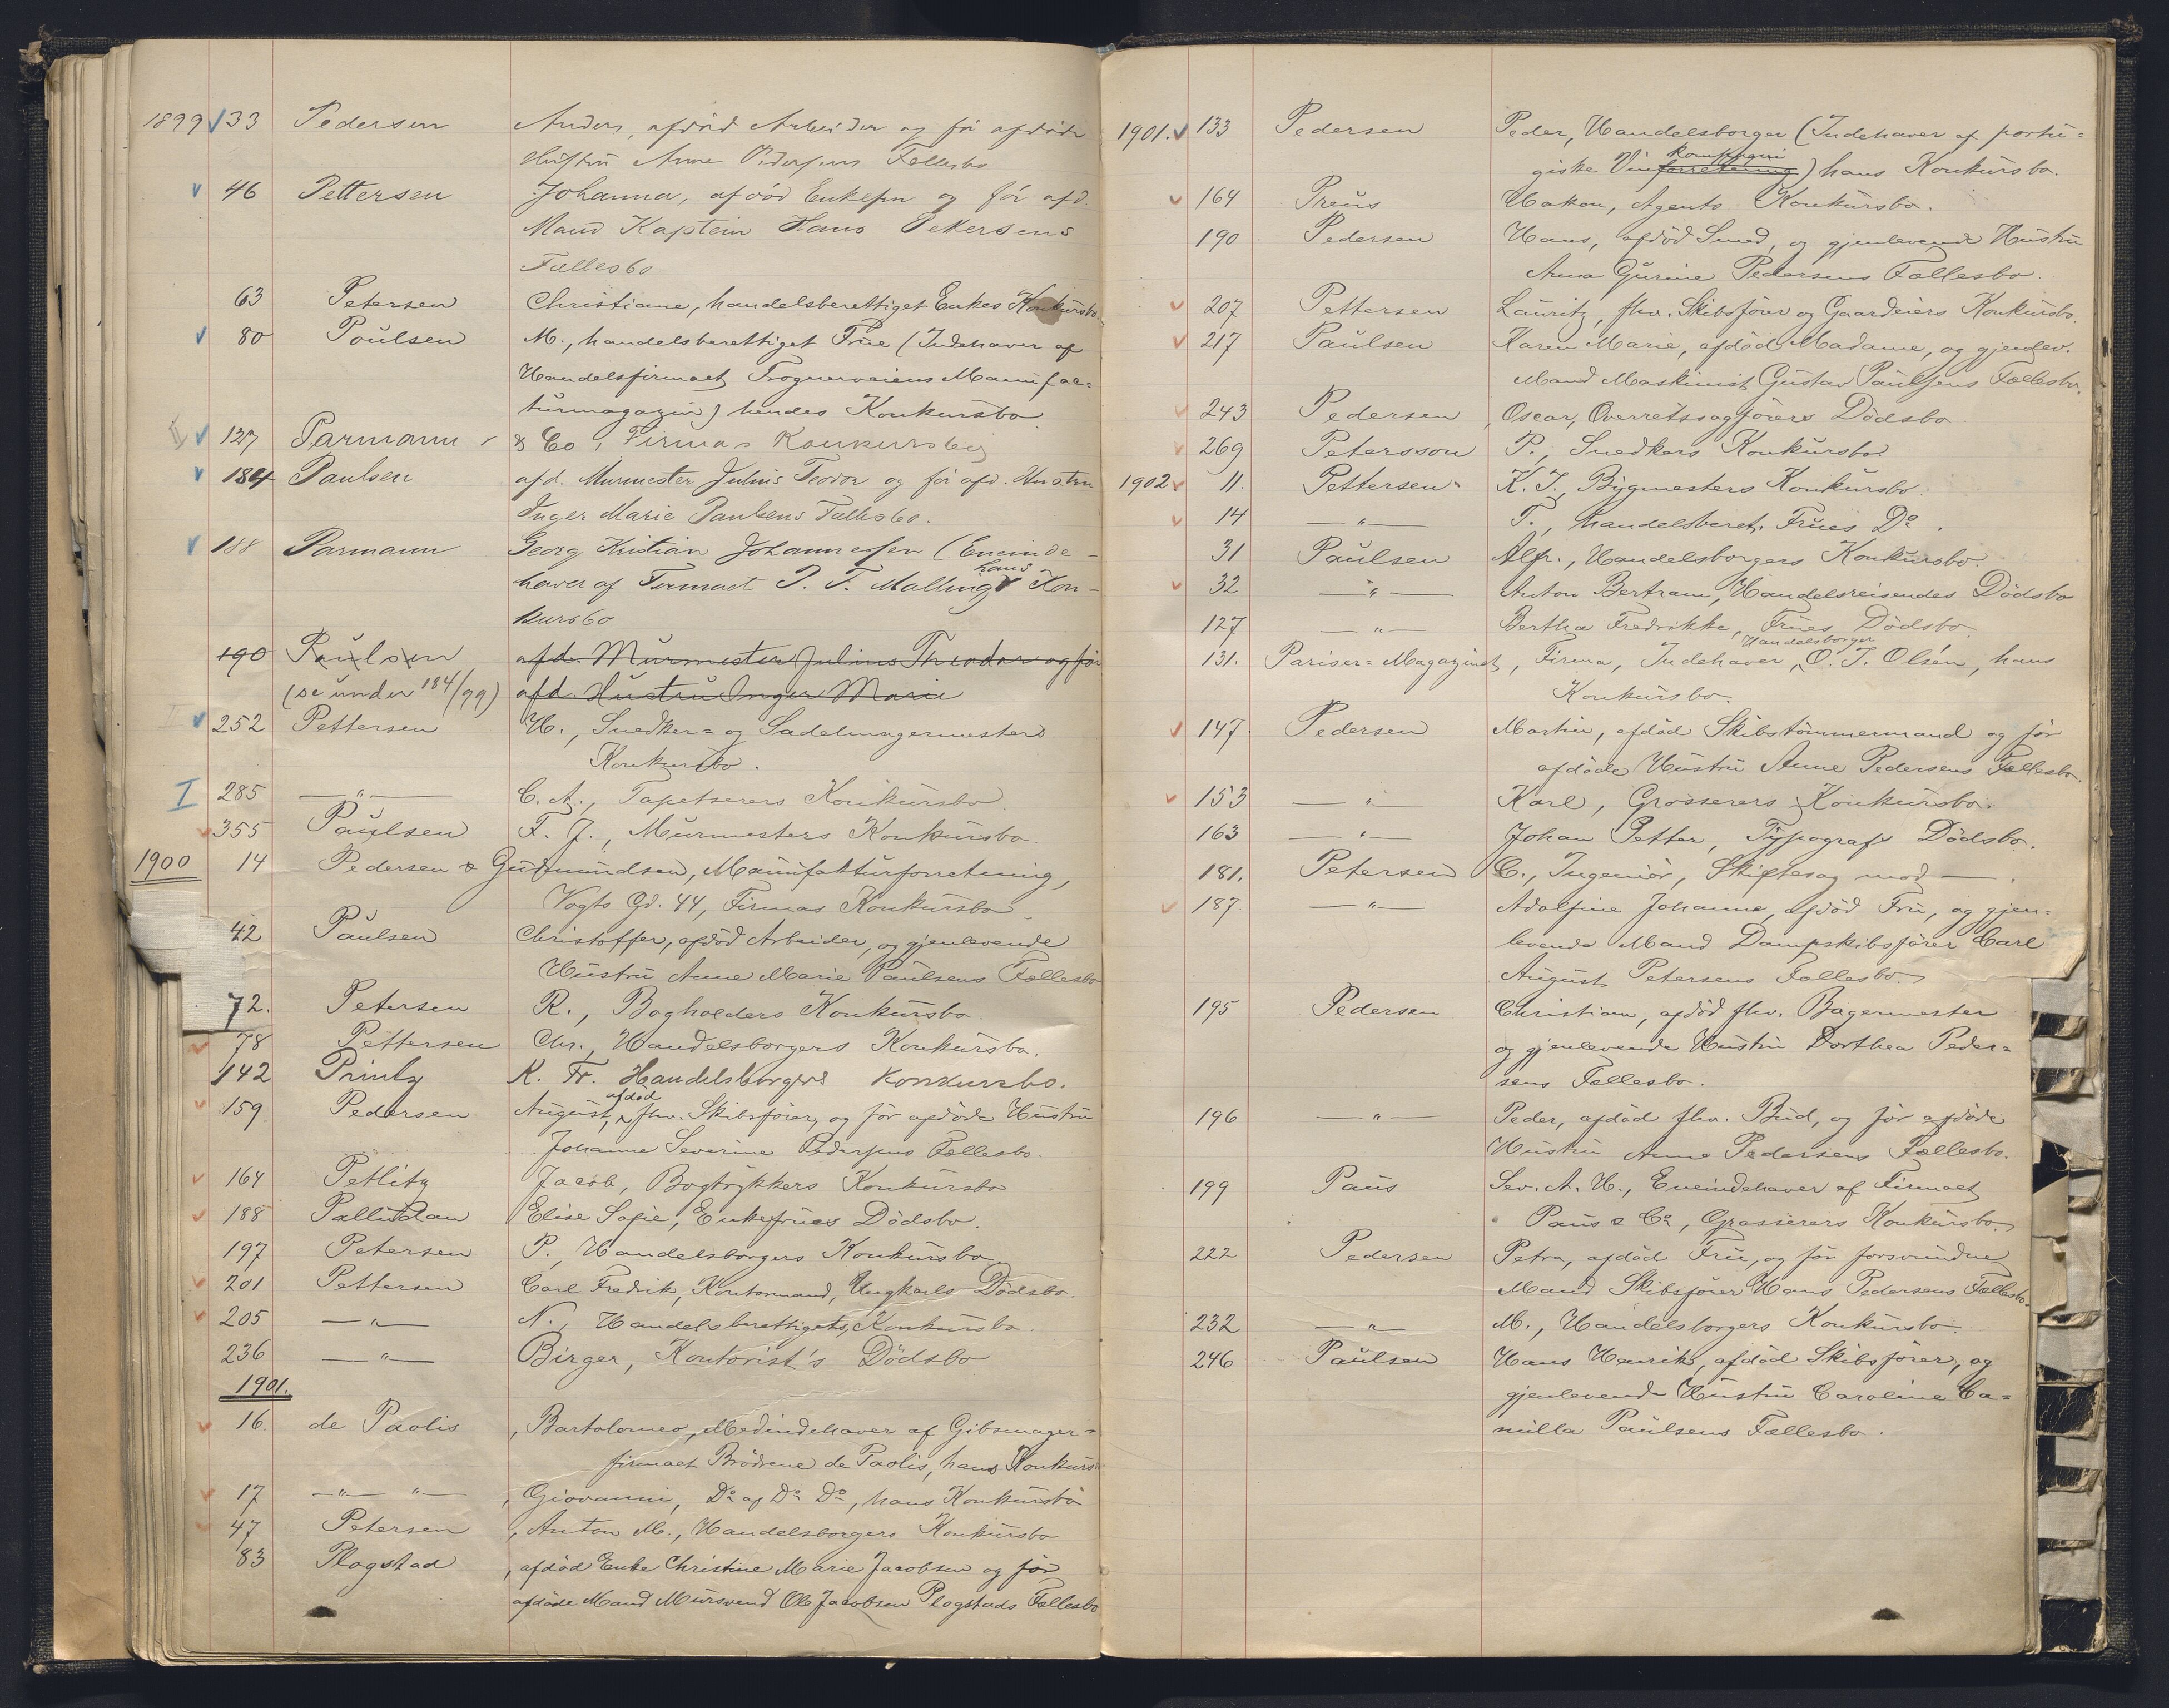 1899 33 Pedersen Anders, afdød Arbeider og før afdøde
Hustru Anne Pedersens Fællesbo
46 Pettersen Johanna, afdød Enkefru og før afd.
Mand Kaptein Hans Petersens
Fællesbo
63 Petersen Christiane, handelsberettiget Enkes Konkursbo.
80 Poulsen M., handelsberettiget Frue (Indehaver af
Handelsfirmaet Frognerveiens Manufac=
turmagazin) hendes Konkursbo
127 Parmann & Co, Firmas Konkursbo
184 Paulsen afd. Murmester Julius Teodor og før afd. Hustru
Inger Marie Paulsens Fællesbo.
188 Parmann Georg Kristian Johannessen (Eneinde-
hans
haver af Firmaet P. T. Malling) Kon-
kursbo
190 Paulsen afd. Murmester Julius Theodor og før
(se under 184/99) afd. Hustru Inger Marie
252 Pettersen H., Snedker= og Sadelmagermesters
Konkursbo.
I 285 —"— C. A., Tapetserers Konkursbo.
355 Paulsen F. J., Murmesters Konkursbo.
1900 14 Pedersen & Gudmundsen, Manufakturforretning,
Vogts Gd. 44, Firmas Konkursbo.
42 Paulsen Christoffer, afdød Arbeider, og gjenlevende
Hustru Anne Marie Paulsens Fællesbo
72. Petersen R., Bogholders Konkursbo.
78 Pettersen Chr., Handelsborgers Konkursbo.
142 Printz K. Fr. Handelsborgers Konkursbo.
afdød
159 Pedersen August, fhv. Skibsfører, og før afdøde Hustru
Johanne Severine Pedersens Fællesbo.
164 Petlitz Jacob, Bogtrykkers Konkursbo
188 Palludan Elise Sofie, Enkefrues Dødsbo.
197 Petersen P., Handelsborgers Konkursbo
201 Pettersen Carl Fredrik, Kontormand, Ungkarls Dødsbo.
205 —"— N., Handelsberettigets Konkursbo.
236 —"— Birger, Kontorist's Dødsbo
1901.
16. de Paolis, Bartolomeo, Medindehaver af Gibsmager=
firmaet Brødrene de Paolis, hans Konkurs
17 —"— "— , Giovanni, Do af Do Do, hans Konkursbo
47 Petersen, Anton M., Handelsborgers Konkursbo
83 Plogstad, afdød Enke Christine Marie Jacobsen og før
afdøde Mand Mursvend Ole Jacobsen Plogstads Fællesbo
1901. 133 Pedersen Peder, Handelsborger (Indehaver af portu=
kompagni
giske Vinforretning) hans Konkursbo.
164 Preus Hakon, Agents Konkursbo.
190 Pedersen Hans, afdød Smed, og gjenlevende Hustru
Anna Gurine Pedersens Fællesbo.
207 Pettersen Lauritz, fhv. Skibsfører og Gaardeiers Konkursbo.
217 Paulsen Karen Marie, afdød Madame, og gjenlev.
Mand Maskinist Gustav Paulsens Fællesbo.
243 Pedersen, Oscar, Overretssagførers Dødsbo.
269 Petersson P., Snedkers Konkursbo
1902 11. Pettersen K. J., Bygmesters Konkursbo.
14 —"— T., handelsberet. Frues Do.
31 Paulsen Alfr., Handelsborgers Konkursbo.
32 —"— Anton Bertram, Handelsreisendes Dødsbo
127 —"— Bertha Fredrikke, Frues Dødsbo.
Handelsborger
131. Pariser=Magazinet, Firma, Indehaver, O. J. Olsen, hans
Konkursbo.
147 Pedersen Martin, afdød Skibstømmermand og før
afdøde Hustru Anne Pedersens Fællesbo.
153 —"— Karl, Grosserers Konkursbo.
163 —"— Johan Petter, Typografs Dødsbo.
181. Petersen C., Ingeniør, Skiftesag mod —.
187. —"— Adolfine Johanne, afdød Fru, og gjen=
levende Mand Dampskibsfører Carl
August Petersens Fællesbo.
195 Pedersen Christian, afdød fhv. Bagermester
og gjenlevende Hustru Dorthea Peder=
sens Fællesbo.
196 —"— Peder, afdød fhv. Bud, og før afdøde
Hustru Anne Pedersens Fællesbo.
199 Paus Sev. A. H., Eneindehaver af Firmaet
Paus & Co, Grosserers Konkursbo.
222 Pedersen Petra, afdød Fru, og før forsvundne
Mand Skibsfører Hans Pedersens Fællesbo.
232 —"— M., Handelsborgers Konkursbo.
246 Paulsen Hans Henrik, afdød Skibsfører, og
gjenlevende Hustru Caroline Ca=
milla Paulsens Fællesbo.